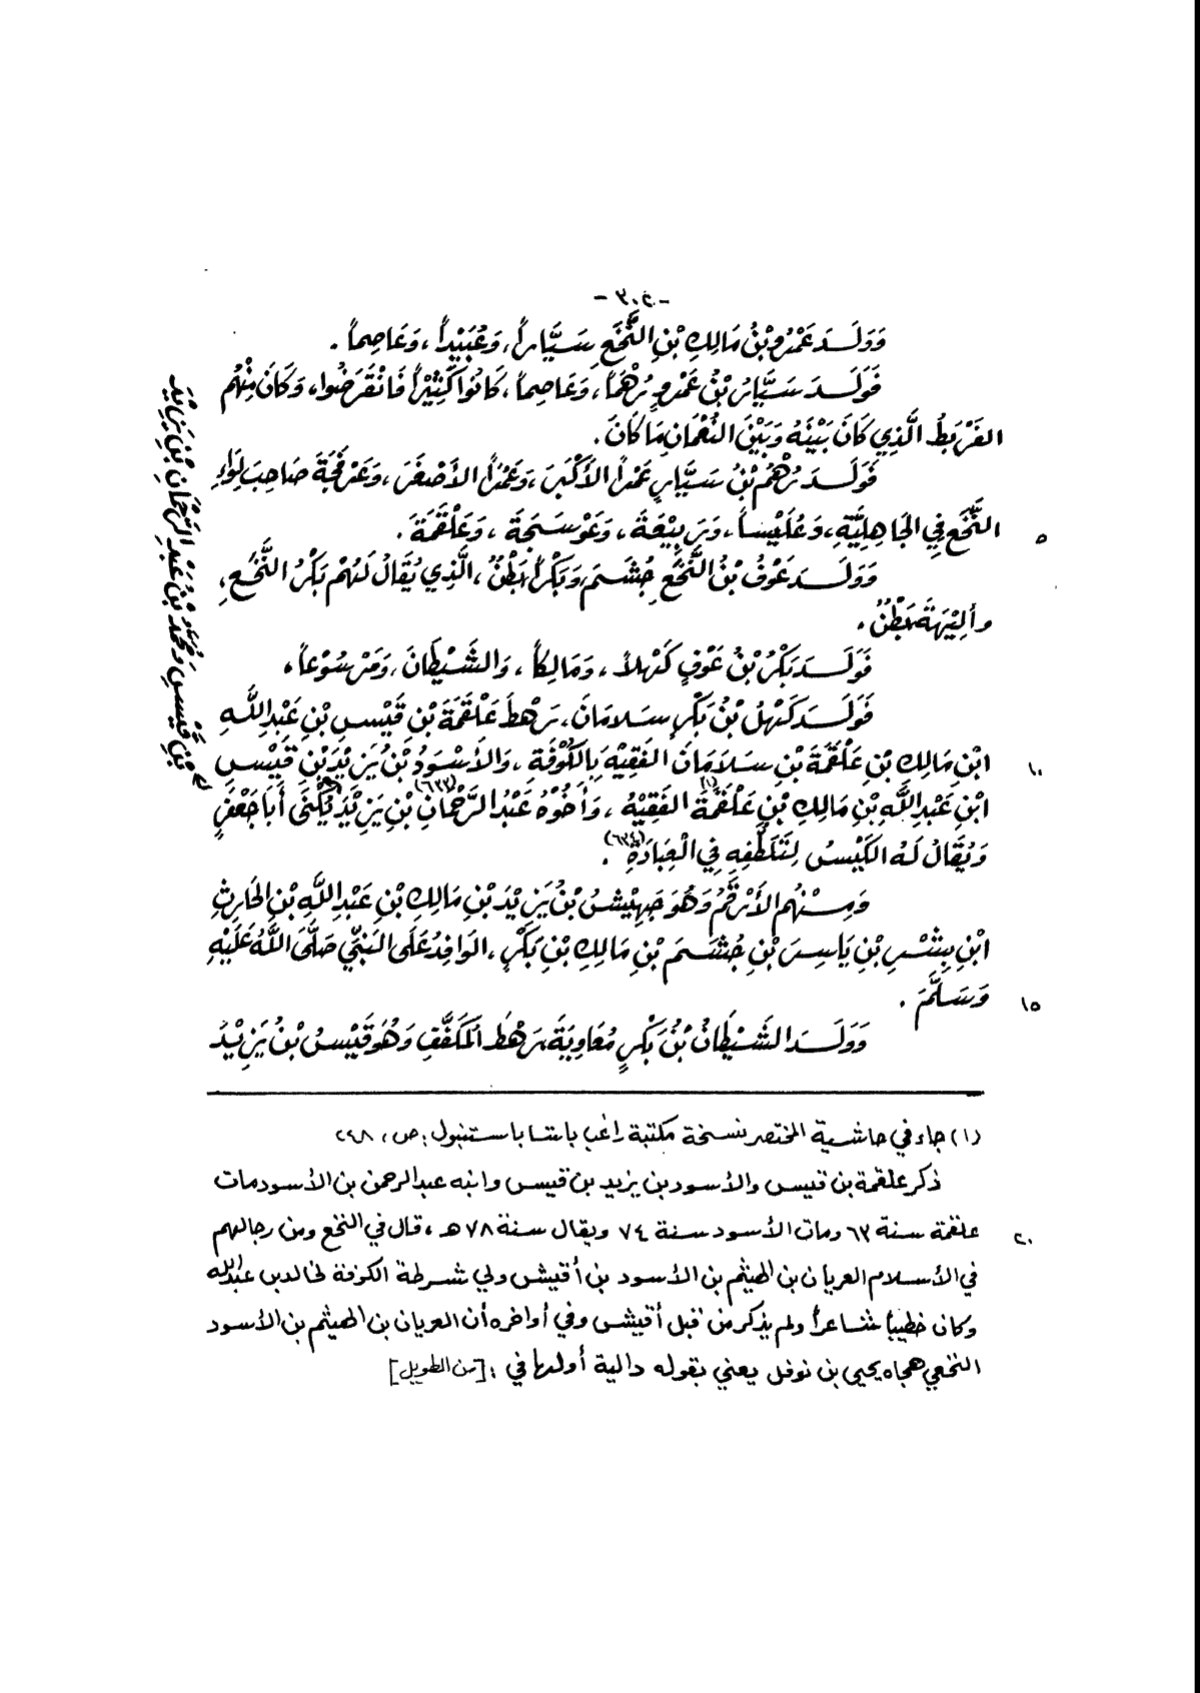 - ٣٠٤ -
وَوَلَدَ عَمْرُو بْنُ مَالِكِ بْنِ النَّخَعِ سَيَّاراً، وَعُبَيْداً، وَعَاصِماً.
فَوَلَدَ سَيَّارُ بْنُ عَمْرٍو رُهْمَاً، وَعَاصِماً، كَانُوا كَثِيْراً فَانْقَرَضُوا، وَكَانَ مِنْهُم
الفَرْبَطُ الَّذِي كَانَ بَيْنَهُ وَبَيْنَ النُّعْمَانِ مَا كَانَ.
فَوَلَدَ رُهْمُ بْنُ سَيَّارٍ عَمْراً الأَكْبَرَ، وَعَمْراً الأَصْغَرَ، وَعَرْفَجَةَ صَاحِبَ لِوَاءِ
النَّخَعِ فِي الجَاهِلِيَّةِ، وَعُلَيْساً، وَرَبِيْعَةَ، وَعَوْسَجَةَ، وَعَلْقَمَةَ.
٥
وَوَلَدَ عَوْفُ بْنُ النَّخَعِ جُشَمَ، وَبَكْراً بَطْنٌ، الَّذِي يُقَالُ لَهُمْ بَكْرُ النَّخَعِ،
وأَلِيْهَةَ بَطْنٌ.
فَوَلَدَ بَكْرُ بْنُ عَوْفٍ كَهْلاً، وَمَالِكاً، وَالشَّيْطَانَ، وَمَرْسُوْعاً،
فَوَلَدَ كَهْلُ بْنُ بَكْرٍ سَلامَانَ، رَهْطَ عَلْقَمَةَ بْنِ قَيْسِ بْنِ عَبْدِ اللَّهِ
ابْنِ مَالِكِ بْنِ عَلْقَمَةَ بْنِ سَلَامَانَ الفَقِيْهَ بِالكُوْفَةِ، وَالأَسْوَدُ بْنُ يَزِيْدَ بْنِ قَيْسِ
١٠
ابْنِ عَبْدِ اللَّهِ بْنِ مَالِكِ بْنِ عَلْقَمَةَ (١) الفَقِيْهُ، وَأَخُوْهُ عَبْدُ الرَّحْمَانِ (٦٣٣) بْنِ يَزِيْدَ يُكْنَى أَبَا جَعْفَرٍ
وَيُقَالُ لَهُ الكَيِّسُ لِتَلَطُّفِهِ فِي الْعِبَادَةِ (٦٣٤).
وَمِنْهُم الأَرْقَمُ وَهُوَ جَهِيْشُ بْنُ يَزِيْدَ بْنِ مَالِكِ بْنِ عَبْدِ اللَّهِ بْنِ الحَارِثِ
ابْنِ بِشْرِ بْنِ يَاسِرَ بْنِ جُشَمَ بْنِ مَالِكِ بْنِ بَكْرٍ، الوَافِدُ عَلَى النَّبِيِّ صَلَّى اللَّهُ عَلَيْهِ
وَسَلَّمَ.
١٥
وَوَلَدَ الشَّيْطَانُ بْنُ بَكْرٍ مُعَاوِيَةَ رَهْطَ المُكَفَّفِ وَهُوَ قَيْسُ بْنُ يَزِيْدَ
بْنِ قَيْسِ وَمُحَمَّدُ بْنُ عَبْدِ الرَّحْمَانِ بْنِ يَزِيْدَ
(١) جاء في حاشية المختصر نسخة مكتبة راغب باشا باستنبول: ص، ٢٤٨
ذكر علقمة بن قيس والأسود بن يزيد بن قيس وابنه عبد الرحمن بن الأسود مات
علقمة سنة ٦٣ ومات الأسود سنة ٧٤ ويقال سنة ٧٨ هـ، قال في النخع ومن رجالهم
٢٠
في الأسلام العريان بن الهيثم بن الأسود بن أقيش ولي شرطة الكوفة لخالد بن عبد الله
وكان خطيباً شاعراً ولم يذكر من قبل أقيش وفي أواخره أن العريان بن الهيثم بن الأسود
النخعي هجاه يحيى بن نوفل يعني بقوله دالية أولها في: [من الطويل]